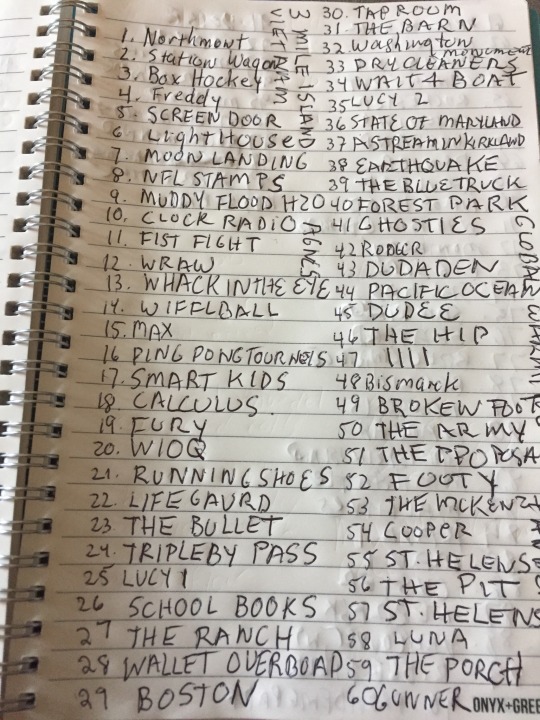 1. Northmont
2. Station Wagon
3. Box Hockey
4. Freddy
5. SCREEN DOOR
6. LightHouse
7. MOON LANDING
8. NFL STAMPS
9. MUDDY FLOOD H2O
10. CLOCK RADIO
11. FIST FIGHT
12. WRAW
13. WHACK IN THE EYE
14. WIFFLBALL
15. MAX
16 PING PONG TOURNEYS
17. SMART KIDS
18. CALCULUS.
19. FURY
20. WIOQ
21. RUNNING SHOES
22. LIFE GAURD
23. THE BULLET
24. TRIPLE BY PASS
25 LUCY 1
26 SCHOOL BOOKS
27 THE RANCH
28 WALLET OVERBOAD
29 BOSTON
VIET NAM
3 MILE ISLAND
AGNES
30. TAP ROOM
31. THE BARN
32 Washington monument
33 DRY CLEANERS
34 WAIT 4 BOAT
35 LUCY 2
36 STATE OF MARYLAND
37 A STREAM IN KIRKLAND
38 EARTHQUAKE
39 THE BLUE TRUCK
40 FOREST PARK
41 GHOSTIES
42 RODGER
43 DUDADEN
44 PACIFIC OCEAN
45 DUDEE
46 THE HIP
47 1111
48 Bismarck
49 BROKEN FOOT
50 THE ARMY
51 THE PPOPOSA
52 FOOTY
53 THE MCKENZ
54 COOPER
55 ST. HELENS
56 THE PIT
57 ST. HELENS
58 LUNA
59 THE PORCH
60 GUNNER
GLOBAL WARMI
ONYX+GREE